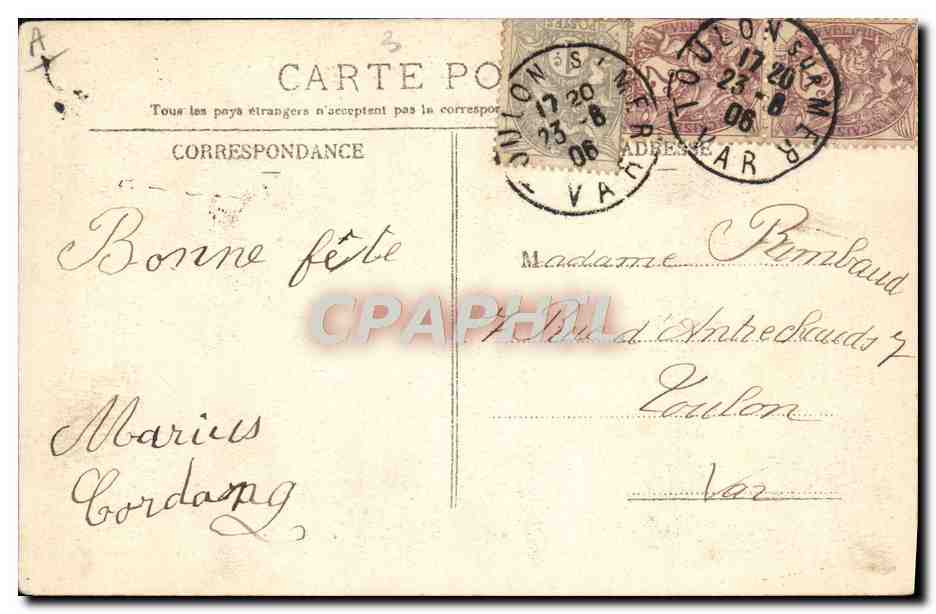 A
3
CARTE PO
Tous les pays étrangers n'acceptent pas la correspon
CORRESPONDANCE
ADRESSE
TOULON S/MER
17 20
23 -8
06
VAR
TOULON SUR MER
17 20
23 -8
06
VAR
Bonne fête
Marius
Cordang
Madame Rimbaud
7 Rue d'Antrechauds 7
Toulon
Var
CPAPHIL